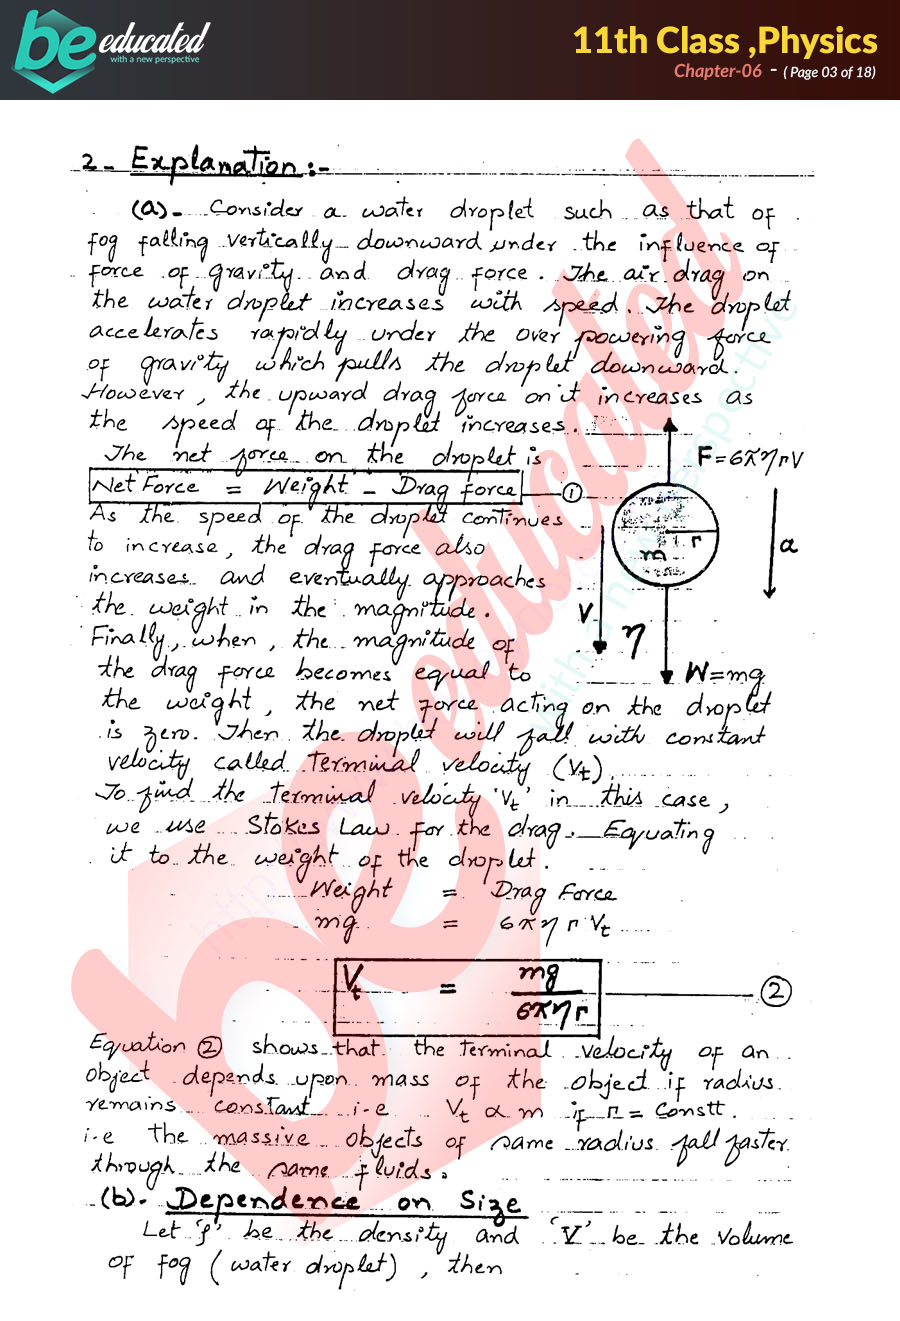 be educated
with a new perspective
11th Class ,Physics
Chapter-06 - ( Page 03 of 18)
2- Explanation :-
(a)- Consider a water droplet such as that of
fog falling vertically downward under the influence of
force of gravity and drag force. The air drag on
the water droplet increases with speed. The droplet
accelerates rapidly under the over powering force
of gravity which pulls the droplet downward.
However, the upward drag force on it increases as
the speed of the droplet increases.
The net force on the droplet is
Net Force = Weight - Drag force ①
As the speed of the droplet continues
to increase, the drag force also
increases and eventually approaches
the weight in the magnitude.
Finally, when, the magnitude of
the drag force becomes equal to
F=6πηrV
m r
a
V
η
W=mg
the weight, the net force acting on the droplet
is zero. Then the droplet will fall with constant
velocity called Terminal velocity (Vt).
To find the terminal velocity 'Vt' in this case,
we use Stokes Law for the drag. Equating
it to the weight of the droplet.
Weight = Drag Force
mg = 6πηr Vt
Vt = mg / 6πηr ②
Equation ② shows that the Terminal velocity of an
object depends upon mass of the object if radius
remains constant i-e Vt ∝ m if r = Constt.
i-e the massive objects of same radius fall faster
through the same fluids.
(b)- Dependence on Size
Let 'ρ' be the density and 'V' be the volume
of fog (water droplet), then
be educated
with a new perspective